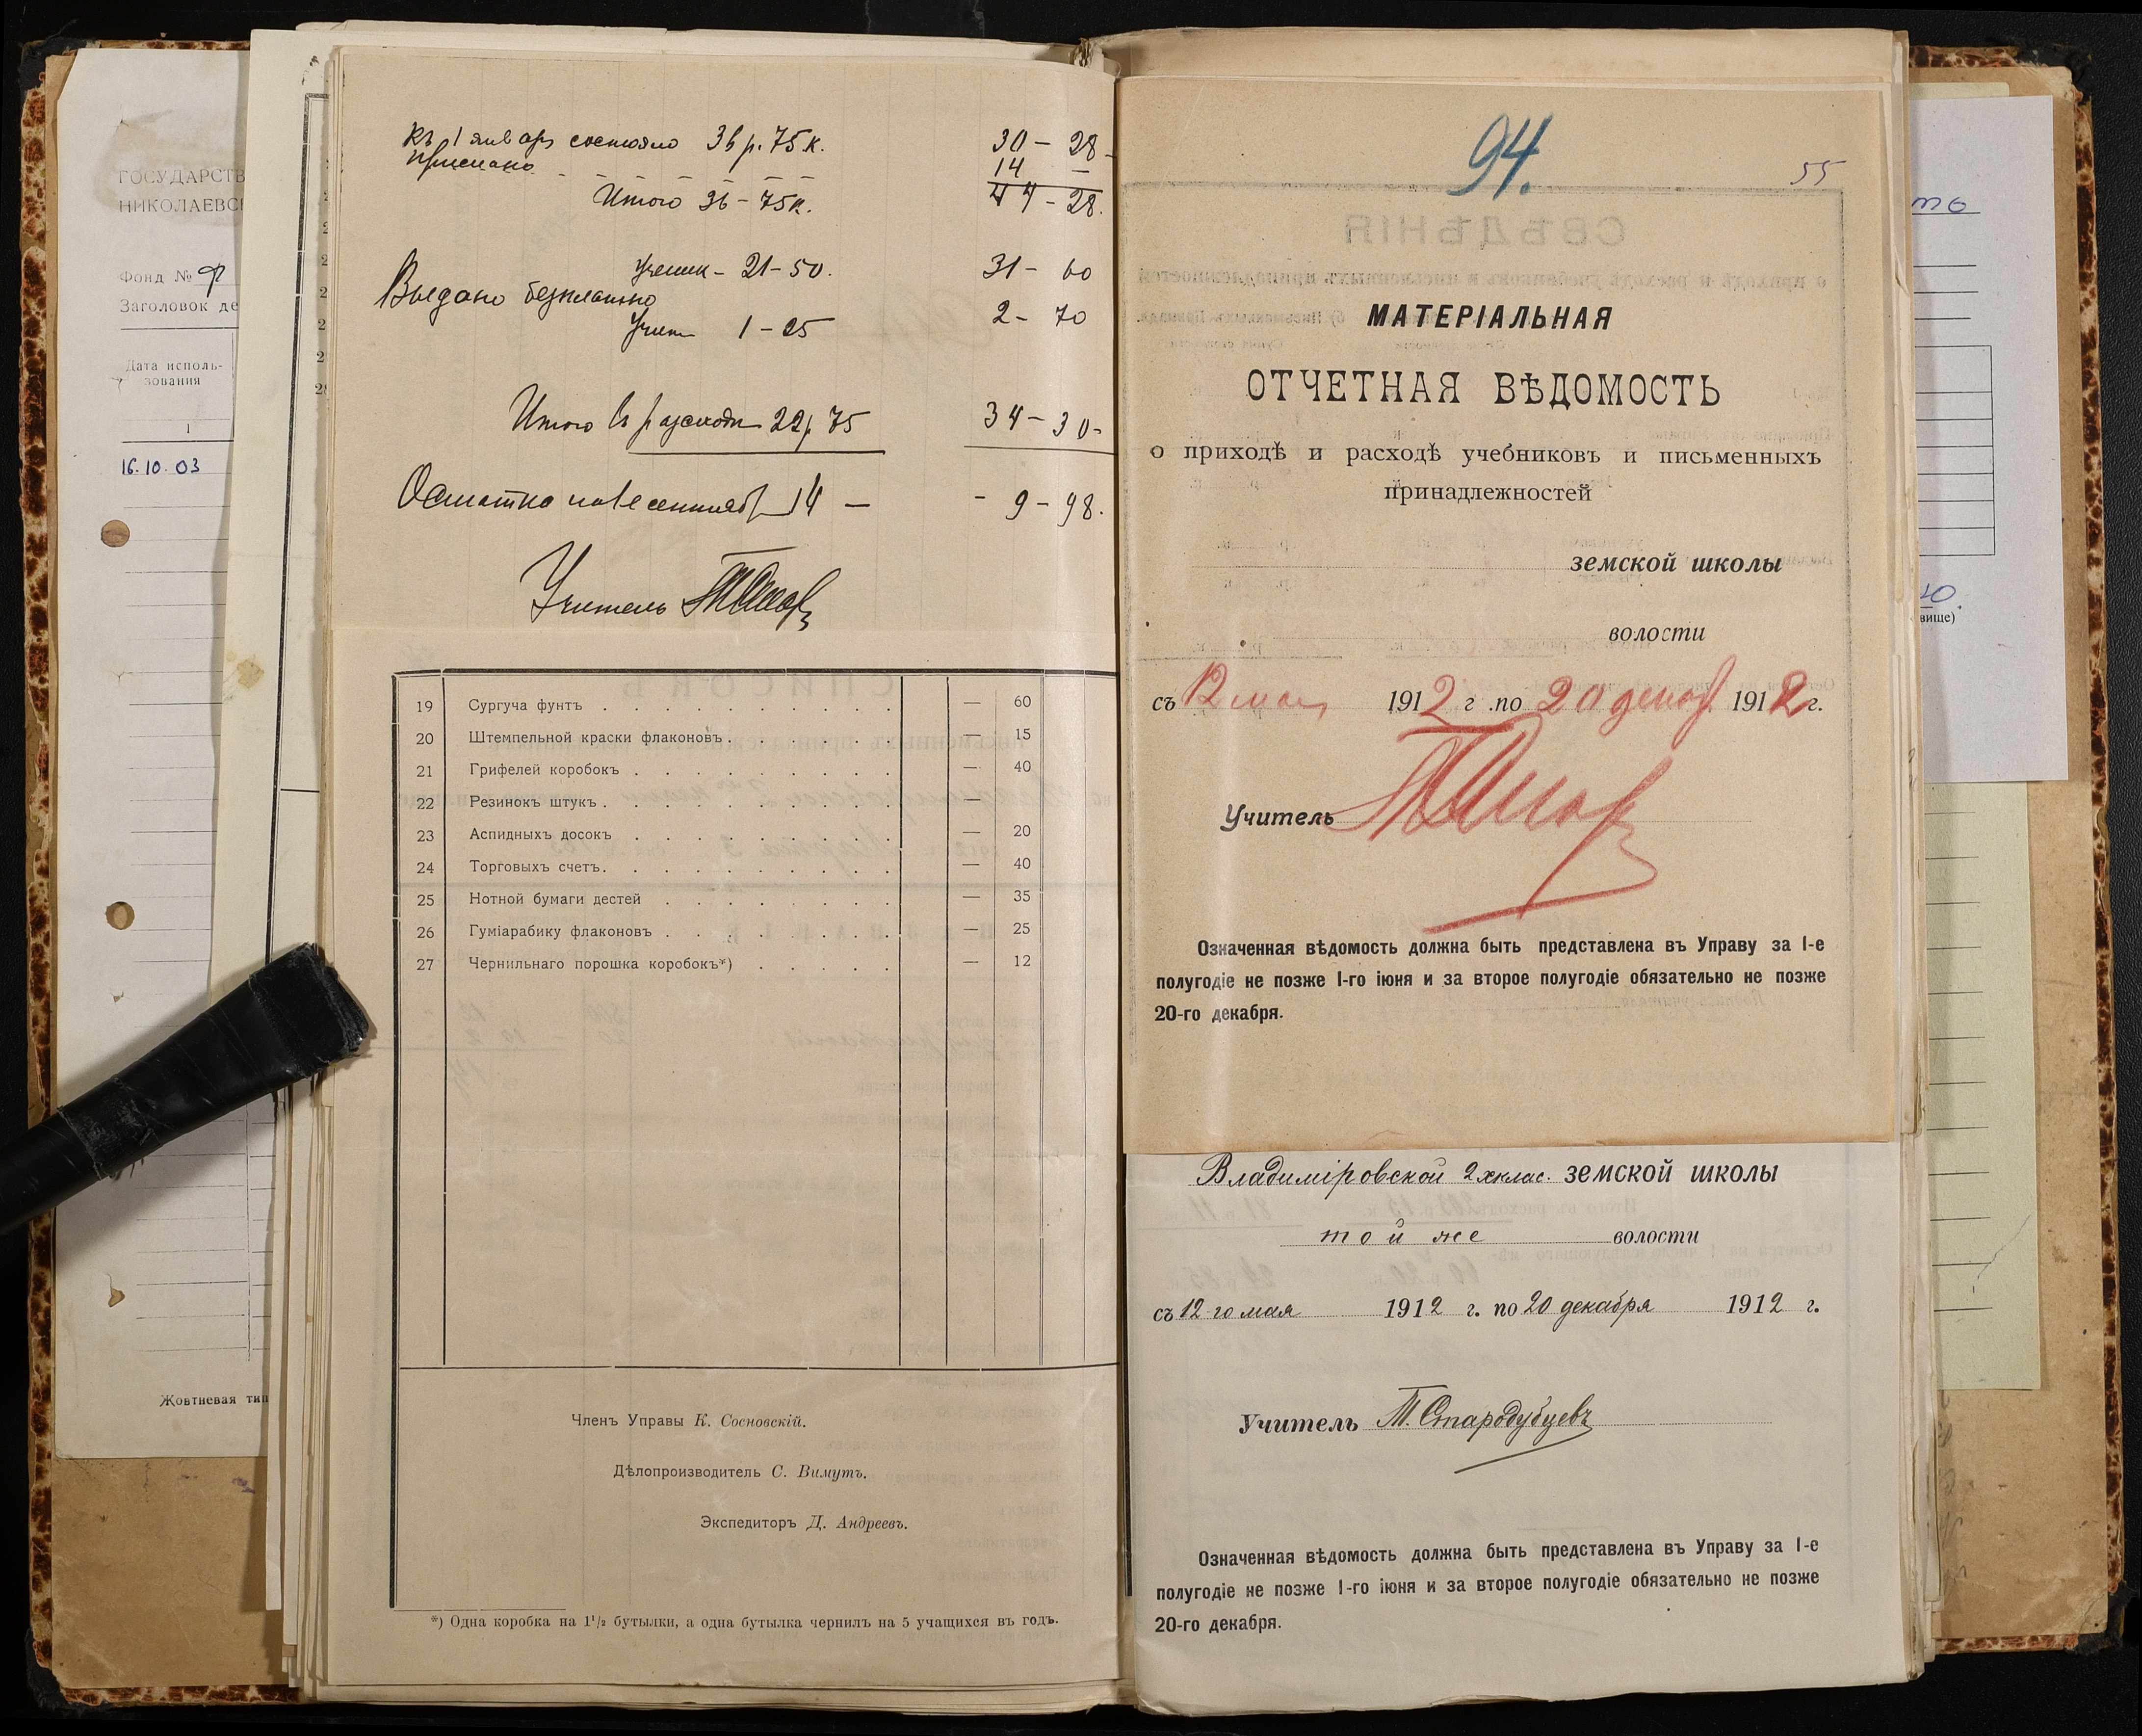 ГОСУДАРСТВ
НИКОЛАЕВС
Фонд №
Заголовок де
Дата исполь-
зования
1
16.10.03
Жовтневая тип
Къ 1 январ состояло 36 р. 75 к. 30 - 28 -
Прислано 14 -
Итого 36 - 75к. 44 - 28.
Ученик - 21 - 50. 31 - 60
Выдано безплатно
Учит 1 - 25 2 - 70
Итого въ расходѣ 22р 75 34 - 30 -
14 - - 9 - 98.
Учитель
19 Сургуча фунтъ — 60
20 Штемпельной краски флаконовъ — 15
21 Грифелей коробокъ — 40
22 Резинокъ штукъ —
23 Аспидныхъ досокъ — 20
24 Торговыхъ счетъ — 40
25 Нотной бумаги дестей — 35
26 Гуміарабику флаконовъ — 25
27 Чернильнаго порошка коробокъ*) — 12
Членъ Управы К. Сосновскій.
Дѣлопроизводитель С. Вимутъ.
Экспедиторъ Д. Андреевъ.
*) Одна коробка на 1½ бутылки, а одна бутылка чернилъ на 5 учащихся въ годъ.
94.
55
МАТЕРІАЛЬНАЯ
ОТЧЕТНАЯ ВѢДОМОСТЬ
о приходѣ и расходѣ учебниковъ и письменныхъ
принадлежностей
земской школы
волости
съ 12 мая 1912 г. по 20 декаб. 1912 г.
Учитель
Означенная вѣдомость должна быть представлена въ Управу за I-е
полугодіе не позже I-го іюня и за второе полугодіе обязательно не позже
20-го декабря.
Владиміровской 2хклас. земской школы
той же волости
съ 12-го мая 1912 г. по 20 декабря 1912 г.
Учитель Т. Стародубцевъ
Означенная вѣдомость должна быть представлена въ Управу за I-е
полугодіе не позже I-го іюня и за второе полугодіе обязательно не позже
20-го декабря.
вище)